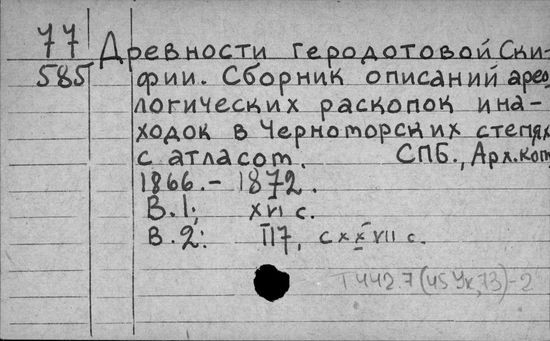 77 Древности геродотовой Ски-
585 фии. Сборник описаний архео
логических раскопок и на-
ходок в Черноморских степях
с атласом. СПБ., Арх. ком
1866. - 1872.
В. 1; XVI с.
В. 2: 117, с XXVII с.
Т 442.7 (45 Ук, 73) - 2